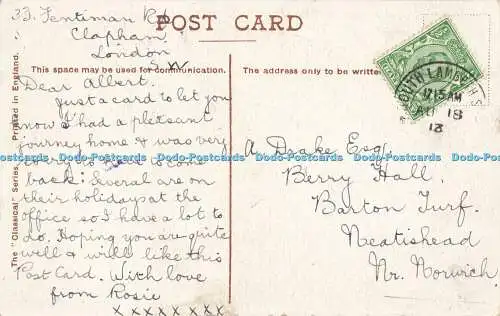 33. Fentiman Rd
Clapham
London
S.W
POST CARD
This space may be used for communication.
The address only to be written
Dear Albert.
Just a card to let you
now I had a pleasent
journey home & was very
sorry to have to come
back: Several are on
their holidays at the
office so I have a lot to
do. Hoping you are quite
well & will like this
Post Card. With love
from Rosie
x x x x x x x x
A Drake Esq
Berry Hall.
Barton Turf.
Neatishead
Nr. Norwich.
SOUTH LAMBETH
12.15 AM
18
13
The "Classical" Series. Printed in England.
Dodo-Postcards Dodo-Postcards Dodo-Postcards Dodo-Postcards Dodo-Postcards